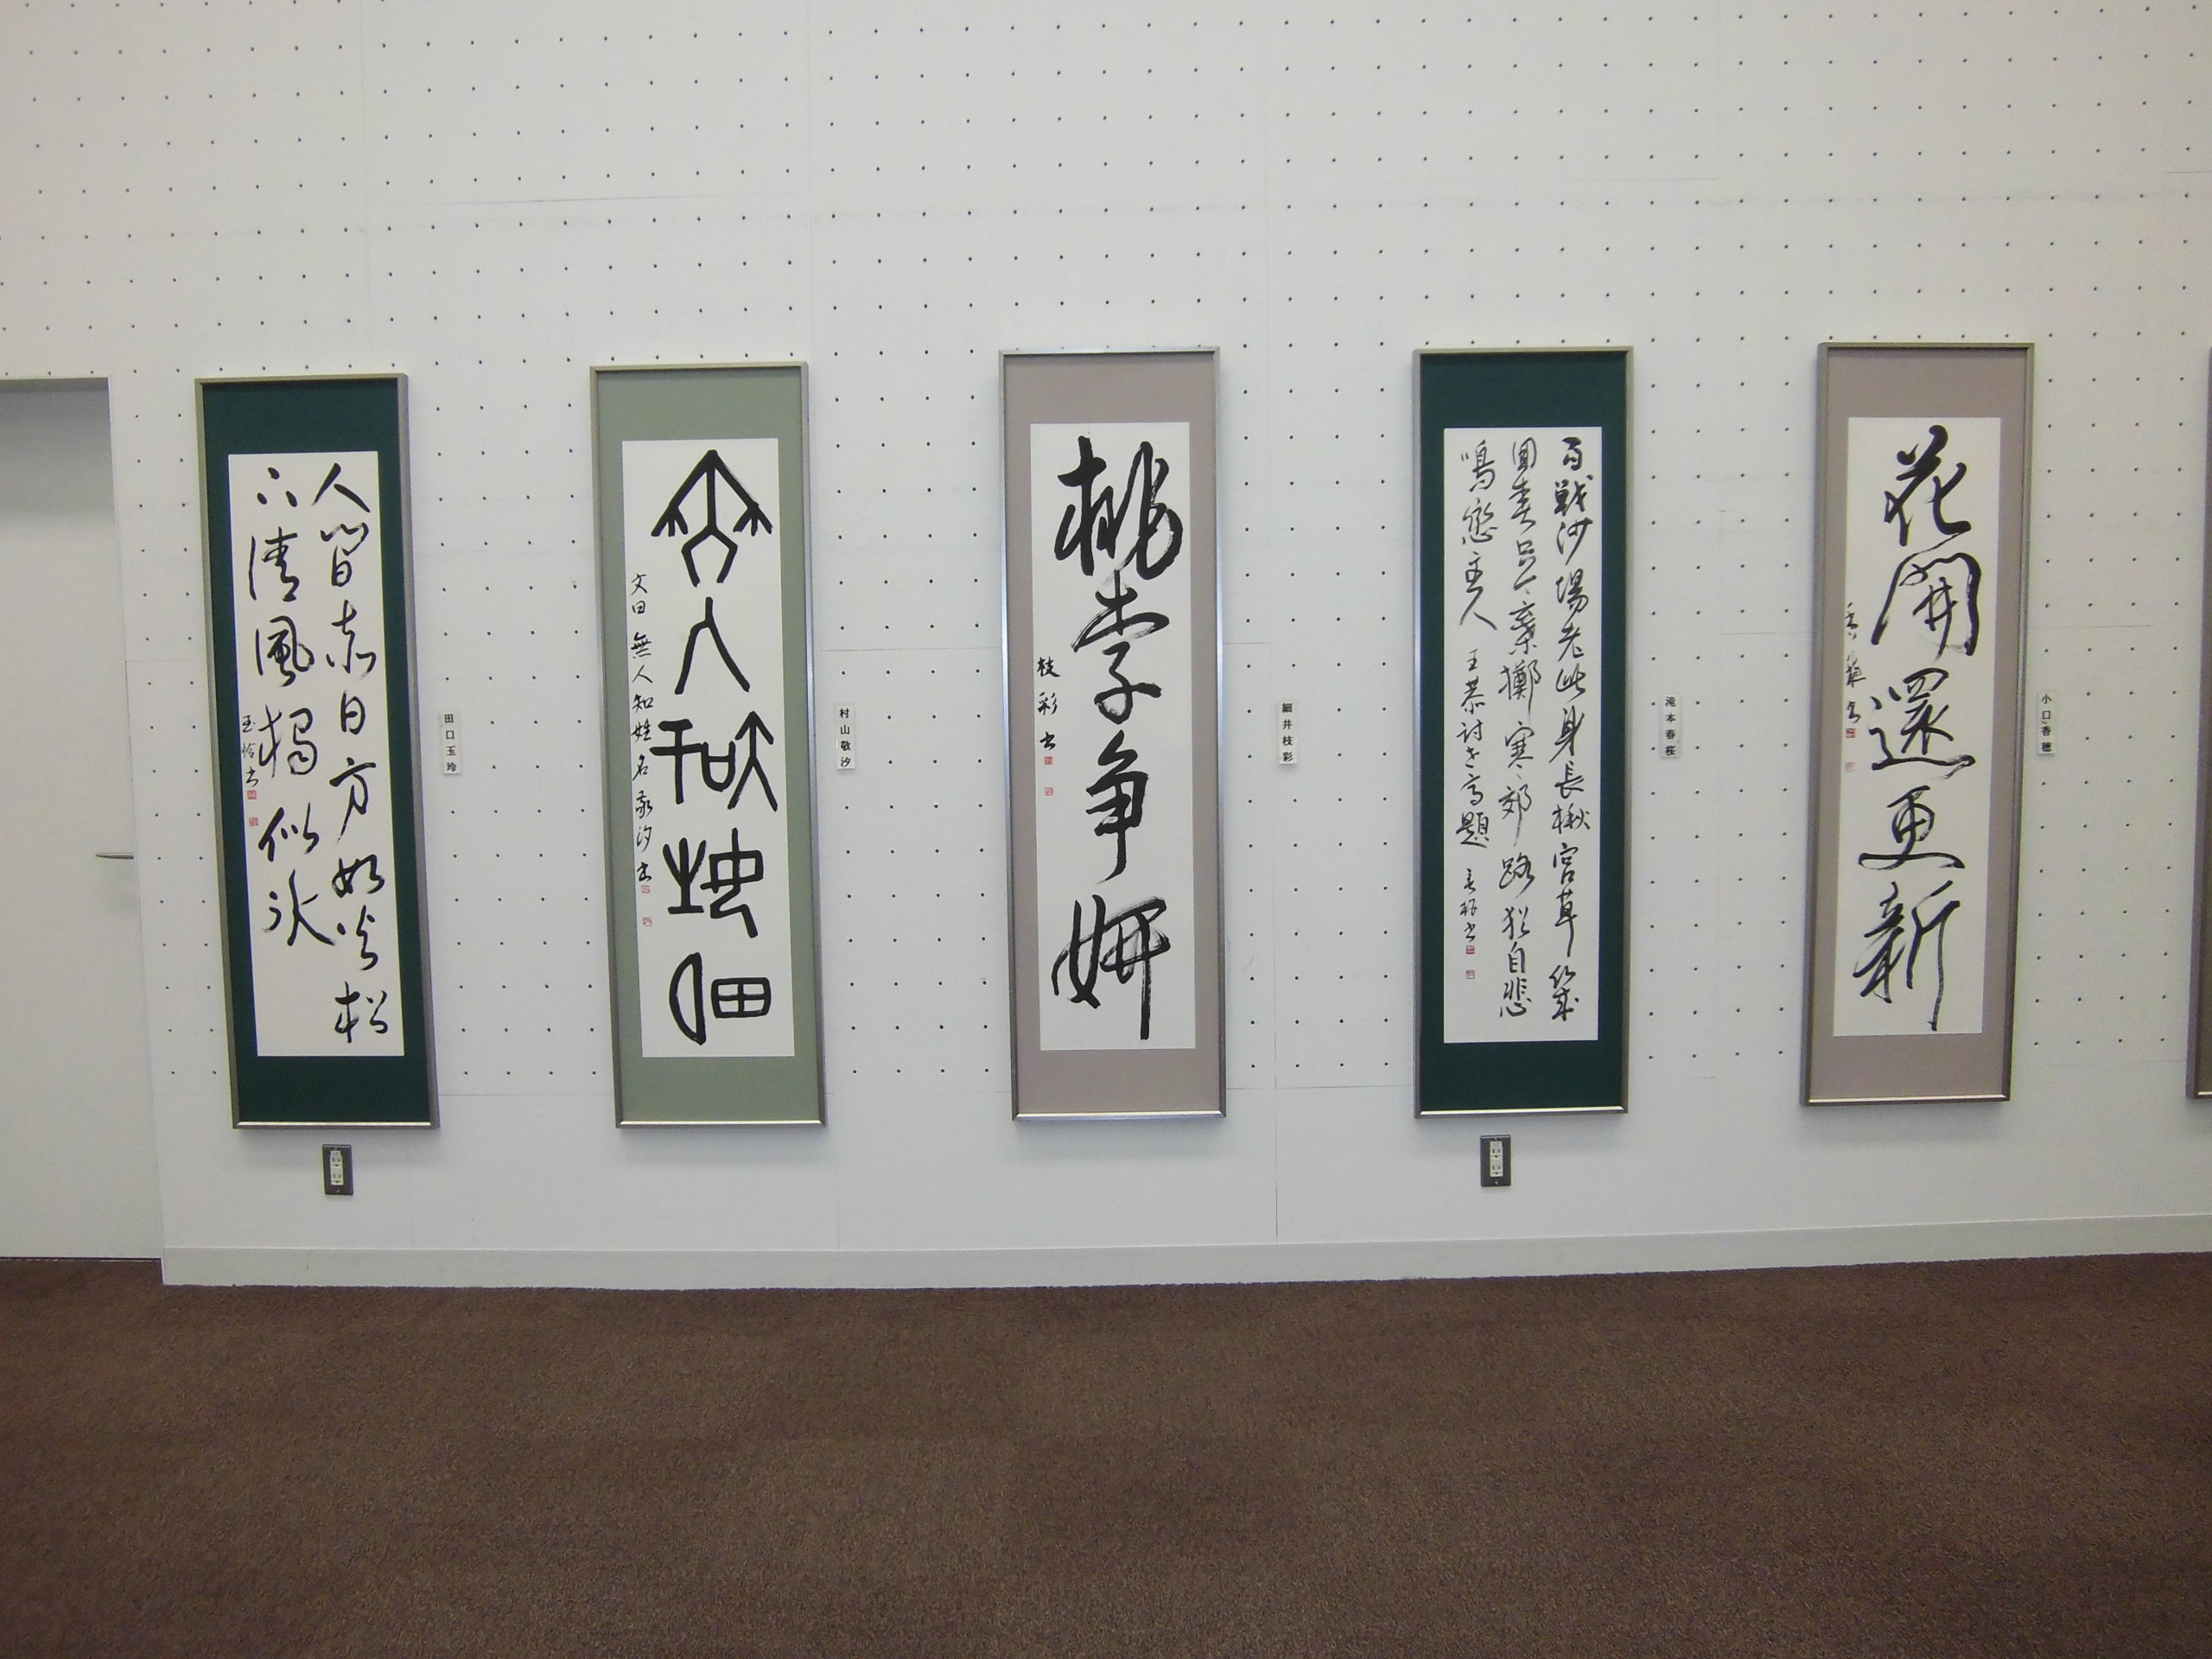 人間赤日方如炎松
下清風獨似氷
玉玲書
田口玉玲
無人知姓名
文曰 無人知姓名 敬汐書
村山敬汐
桃李争妍
枝彩書
細井枝彩
百戦沙場老此身長楸宮草幾
回春只今棄擲寒郊路猶自悲
鳴戀主人 王恭詩老馬題 春桜書
滝本春桜
花開還更新
香穂書
小口香穂